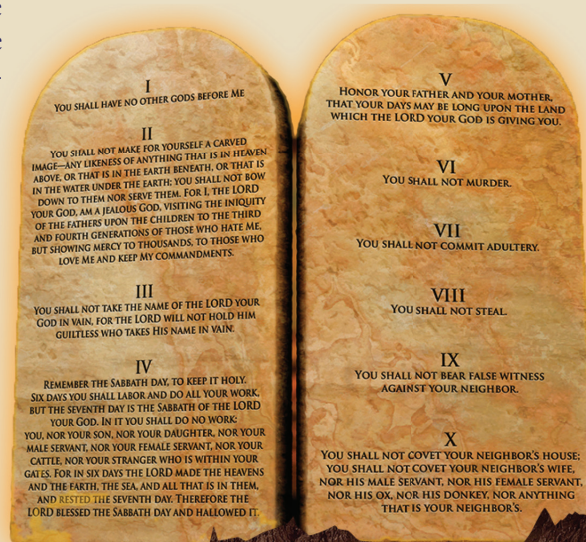 I
YOU SHALL HAVE NO OTHER GODS BEFORE ME
II
YOU SHALL NOT MAKE FOR YOURSELF A CARVED
IMAGE—ANY LIKENESS OF ANYTHING THAT IS IN HEAVEN
ABOVE, OR THAT IS IN THE EARTH BENEATH, OR THAT IS
IN THE WATER UNDER THE EARTH; YOU SHALL NOT BOW
DOWN TO THEM NOR SERVE THEM. FOR I, THE LORD
YOUR GOD, AM A JEALOUS GOD, VISITING THE INIQUITY
OF THE FATHERS UPON THE CHILDREN TO THE THIRD
AND FOURTH GENERATIONS OF THOSE WHO HATE ME,
BUT SHOWING MERCY TO THOUSANDS, TO THOSE WHO
LOVE ME AND KEEP MY COMMANDMENTS.
III
YOU SHALL NOT TAKE THE NAME OF THE LORD YOUR
GOD IN VAIN, FOR THE LORD WILL NOT HOLD HIM
GUILTLESS WHO TAKES HIS NAME IN VAIN.
IV
REMEMBER THE SABBATH DAY, TO KEEP IT HOLY.
SIX DAYS YOU SHALL LABOR AND DO ALL YOUR WORK,
BUT THE SEVENTH DAY IS THE SABBATH OF THE LORD
YOUR GOD. IN IT YOU SHALL DO NO WORK:
YOU, NOR YOUR SON, NOR YOUR DAUGHTER, NOR YOUR
MALE SERVANT, NOR YOUR FEMALE SERVANT, NOR YOUR
CATTLE, NOR YOUR STRANGER WHO IS WITHIN YOUR
GATES. FOR IN SIX DAYS THE LORD MADE THE HEAVENS
AND THE EARTH, THE SEA, AND ALL THAT IS IN THEM,
AND RESTED THE SEVENTH DAY. THEREFORE THE
LORD BLESSED THE SABBATH DAY AND HALLOWED IT.
V
HONOR YOUR FATHER AND YOUR MOTHER,
THAT YOUR DAYS MAY BE LONG UPON THE LAND
WHICH THE LORD YOUR GOD IS GIVING YOU.
VI
YOU SHALL NOT MURDER.
VII
YOU SHALL NOT COMMIT ADULTERY.
VIII
YOU SHALL NOT STEAL.
IX
YOU SHALL NOT BEAR FALSE WITNESS
AGAINST YOUR NEIGHBOR.
X
YOU SHALL NOT COVET YOUR NEIGHBOR'S HOUSE;
YOU SHALL NOT COVET YOUR NEIGHBOR'S WIFE,
NOR HIS MALE SERVANT, NOR HIS FEMALE SERVANT,
NOR HIS OX, NOR HIS DONKEY, NOR ANYTHING
THAT IS YOUR NEIGHBOR'S.